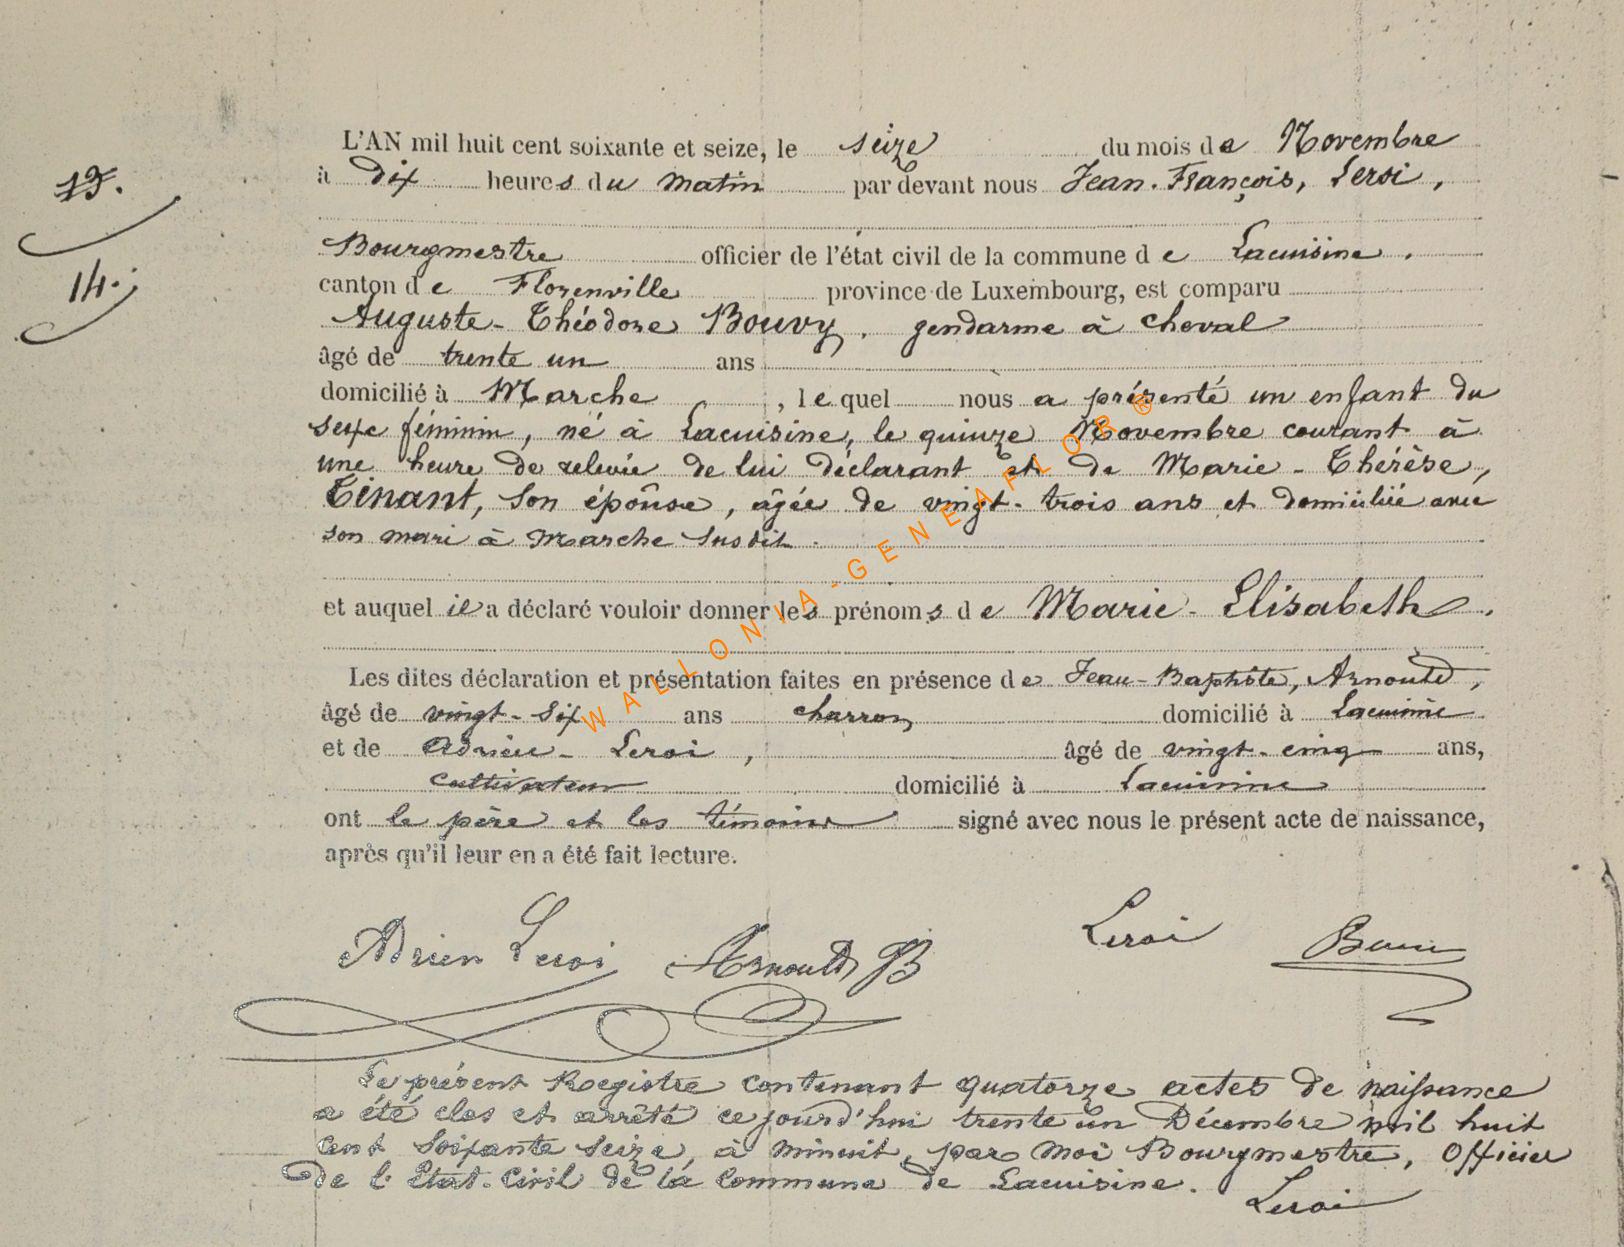 L'AN mil huit cent soixante et seize, le seize du mois de Novembre
à Dix heures du matin par devant nous Jean-François, Leroi,
Bourgmestre officier de l'état civil de la commune de Lacuisine.
canton de Florenville province de Luxembourg, est comparu
Auguste-Théodore Bouvy, gendarme à cheval
âgé de trente un ans
domicilié à Marche, lequel nous a présenté un enfant du
sexe féminin, né à Lacuisine, le quinze Novembre courant à
une heure de relevée de lui déclarant et de Marie-Thérèse,
Tinant, son épouse, âgée de vingt-trois ans et domiciliée avec
son mari à Marche susdit.
et auquel il a déclaré vouloir donner les prénoms de Marie-Elisabeth.
Les dites déclaration et présentation faites en présence de Jean-Baptiste, Arnould,
âgé de vingt-six ans charron domicilié à Lacuisine
et de Adrien-Leroi, âgé de vingt-cinq ans,
cultivateur domicilié à Lacuisine
ont le père et les témoins signé avec nous le présent acte de naissance,
après qu'il leur en a été fait lecture.
14.
Adrien Leroi Arnould JB Leroi
Le présent Registre contenant quatorze actes de naissance
a été clos et arrêté ce jourd'hui trente un Décembre mil huit
cent soixante seize, à minuit, par moi Bourgmestre, Officier
de l'Etat-Civil de la Commune de Lacuisine.
Leroi
WALLONIA-GENEAFLOR ®